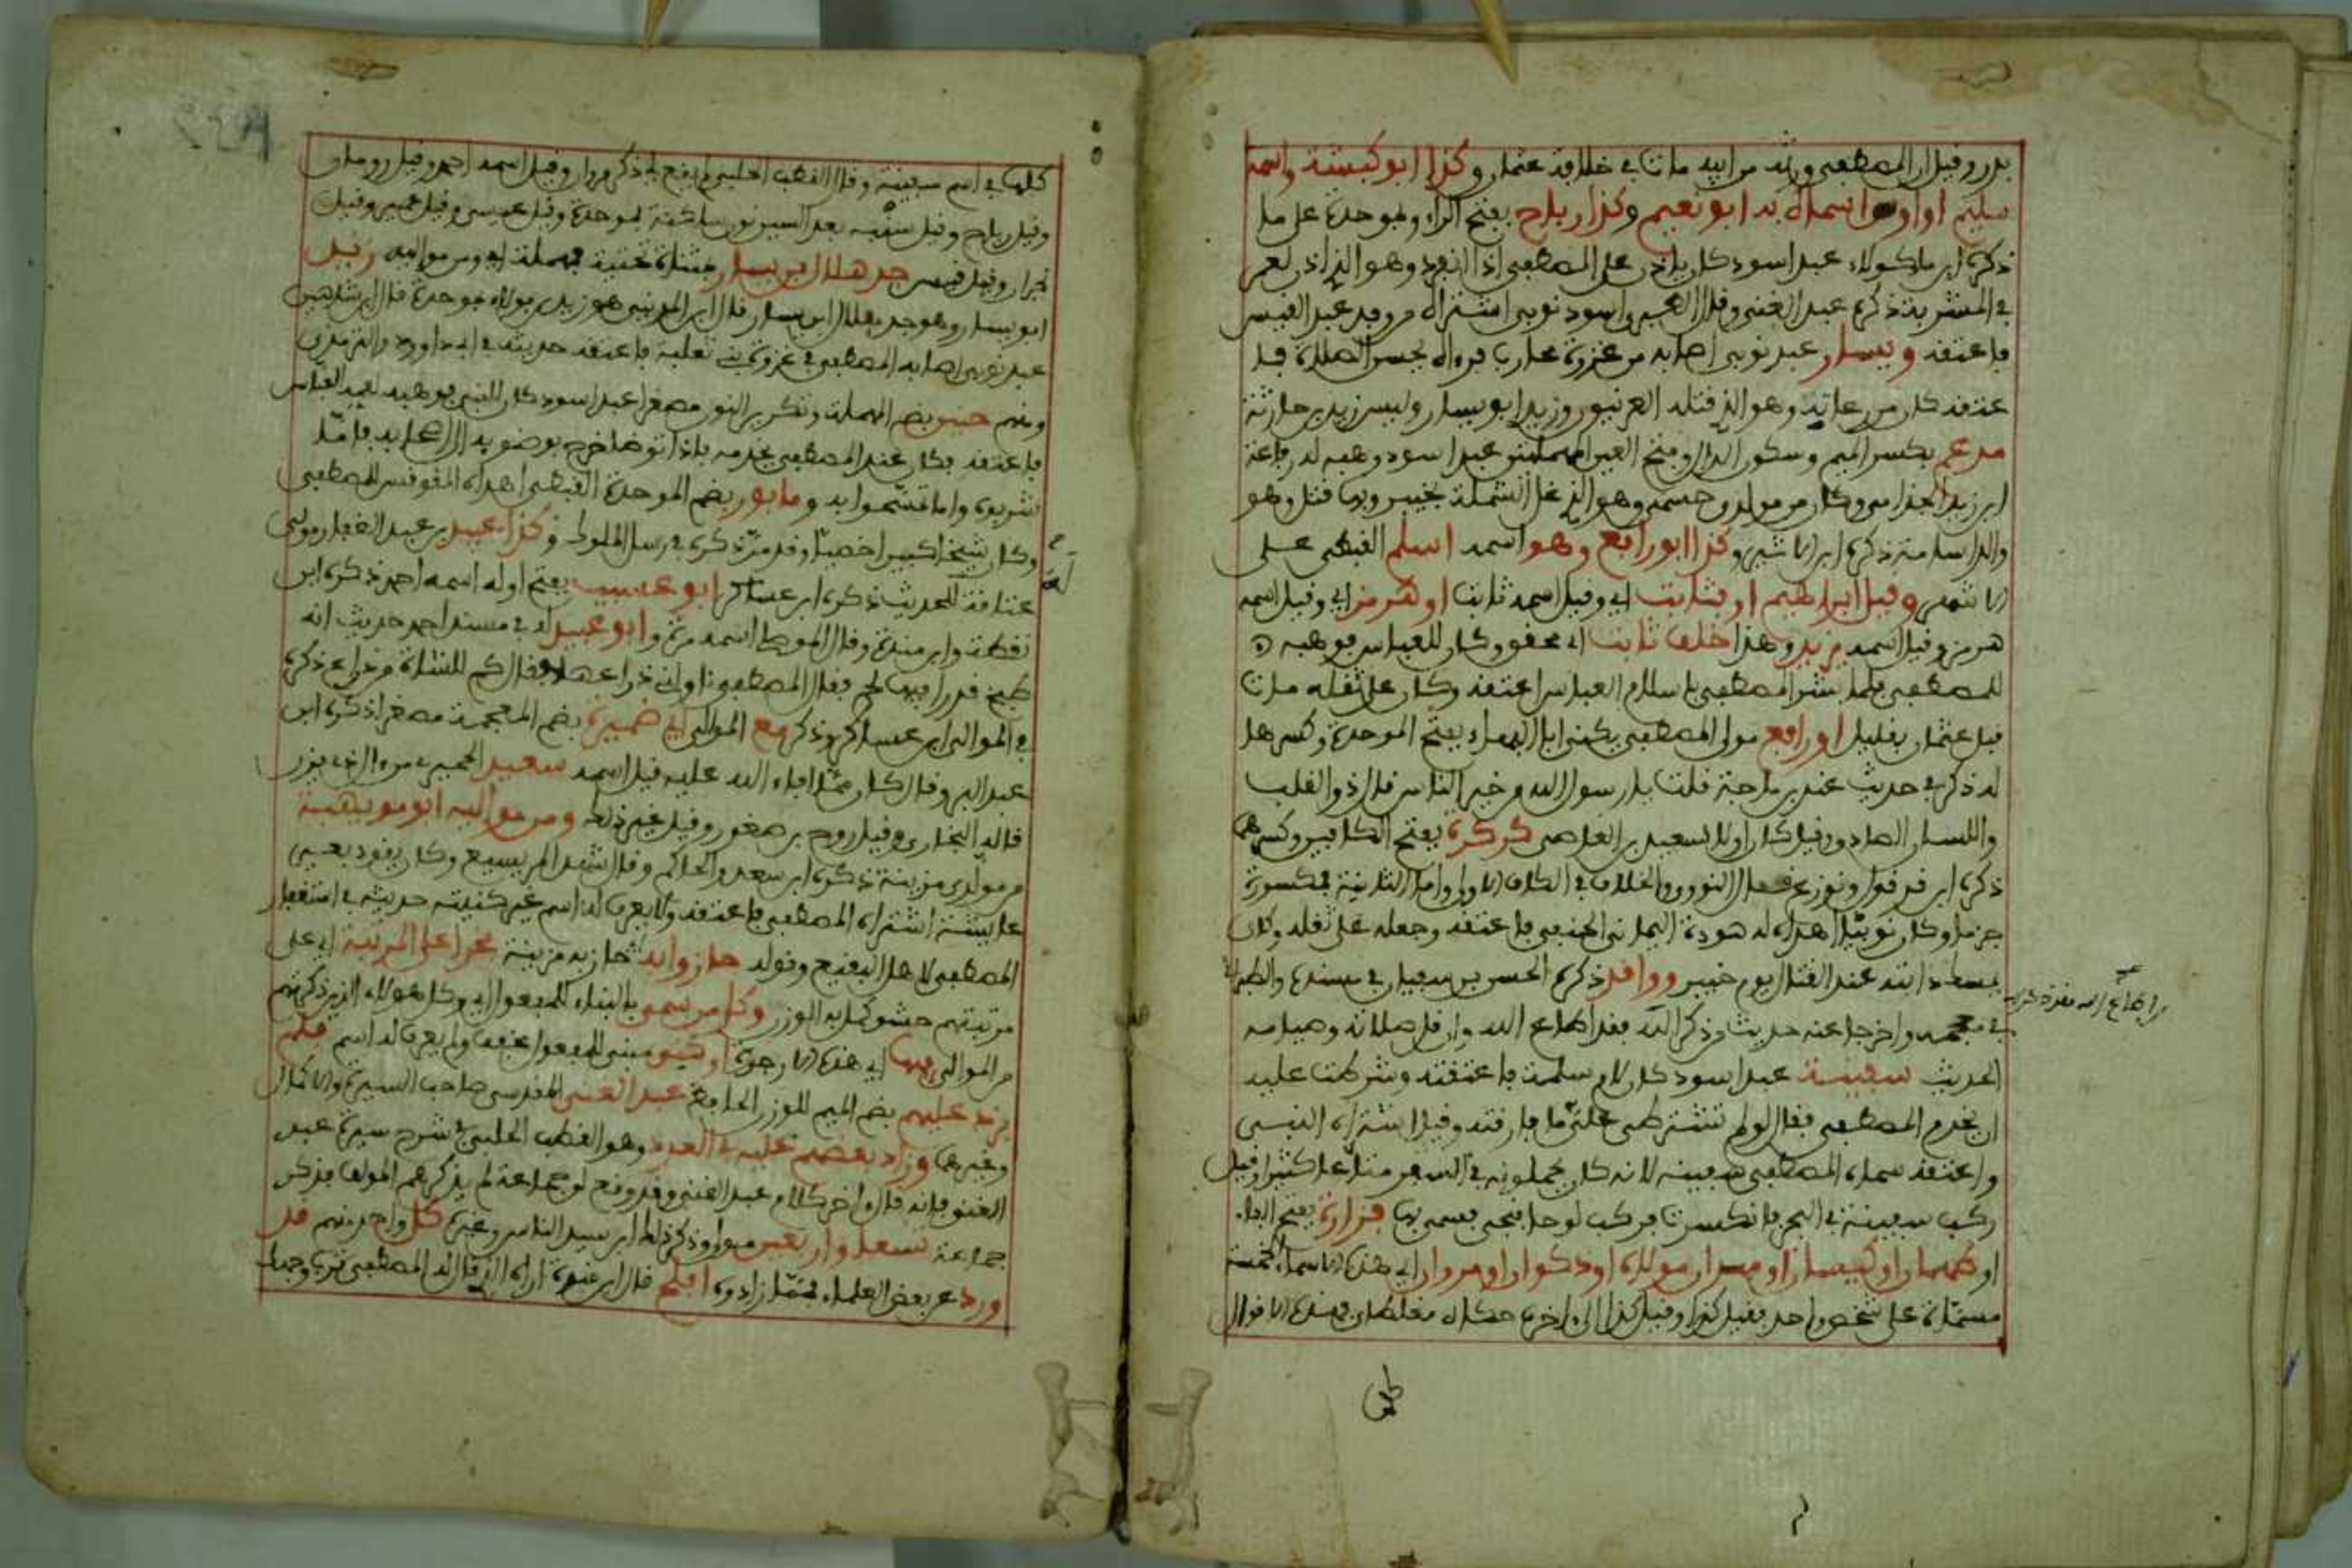 بدر وقيل ان المصطفى ورثه من ابيه مات في خلافة عثمان وكذا ابو كبشة واسمه
سليم او اوس اسماه به ابو نعيم وكذا رباح بفتح الراء وبموحدة على ما
ذكره ابن ماكولاء عبد اسود كان ياذن على المصطفى اذا انفرد وهو الذي اذن لعمر
في المشربة ذكره عبد الغني وقال اسود نوبي اشتراه من وفد عبد القيس
فاعتقه ويسار عبد نوبي اصابه من غزوة محارب فرءاه يحسن الصلاة
عتقه كان من رعاته وهو الذي قتله العرنيون وزيد ابو يسار وليس زيد بن حارثة
مدعم بكسر الميم وسكون الدال وفتح العين المهملتين عبد اسود وهبه له رفاعة
ابن زيد الجذامي وكان من مولدي حسمى وهو الذي غل الشملة بخيبر وبها قتل وهو
والد اسامة ذكره ابن الاثير وكذا ابو رافع وهو اسمه اسلم القبطي على
الاشهر وقيل ابراهيم او بثابت اي وقيل اسمه ثابت او هرمز اي وقيل اسمه
هرمز وقيل اسمه يزيد وهذا خلف ثابت اي محقق وكان للعباس فوهبه
للمصطفى فلما بشر المصطفى باسلام العباس اعتقه وكان على ثقله مات
قبل عثمان بقليل او رافع مولى المصطفى يكنى ابا البهاء بفتح الموحدة وكسرها
له ذكر في حديث عند بن ماجة قلت يا رسول الله من خير الناس قال ذو القلب
واللسان الصادق وقيل كان اولا لسعيد بن العاصى كركرة بفتح الكافين وكسرهما
ذكره ابن قرقول ونوزع فقال النووي والخلاف في الكاف الاولى واما الثانية فمكسورة
جزما وكان نوبيا اهداه له هوذة اليماني الحنفي فاعتقه وجعله على ثقله وكان
يمسك دابته عند القتال يوم خيبر وواقد ذكره الحسن بن سفيان في مسنده والطبراني
في معجمه واخرجا عنه حديث من ذكر الله فقد اطاع الله وان قل صلاته وصيامه
من اطاع الله فقد ذكره
الحديث سفينة عبد اسود كان لام سلمة فاعتقته وشرطت عليه
ان يخدم المصطفى فقال لو لم تشترطي علي ما فارقته وقيل اشتراه النبي
واعتقه سماه المصطفى سفينة لانه كان يحملونه في السفر متاعا كثيرا وقيل
ركب سفينة في البحر فانكسرت فركب لوحا فنجي فسمي بها فزارة بفتح الفاء
او طهمان او كيسان او مهران مولاه او ذكوان او مروان اي هذه الاسماء الخمسة
مسماة على شخص واحد فقيل كذا وقيل كذا الى واخره حكاه مغلطاي فهذه الاقوال
كلها
كلها في اسم سفينة وقال القطب الحلبي لم يقع لي ذكر مروان وقيل اسمه احمر وقيل رومان
وقيل رباح وقيل سنبه بعد السين نون ساكنة فموحدة وقيل عيسى وقيل عمير وقيل
نجران وقيل قيس جد هلال بن يسار مثناة تحتية فمهملة اي ومن مواليه زيد
ابو يسار وهو جد بلال ابن يسار قال ابن المديني هو زيد بن بولاء بموحدة قال ابن شاهين
عبد نوبي اصابه المصطفى في غزوة بني ثعلبة فاعتقه حديثه في ابي داوود والترمذي
ومنهم حنين بضم المهملة وتكرير النون مصغرا عبد اسود كان للنبي فوهبه لعمه العباس
فاعتقه فكان عند المصطفى يخدمه فاذا توضا خرج بوضوءه الى اصحابه فاما
شربوه واما تمسحوا به ومابور بضم الموحدة القبطي اهداه المقوقس للمصطفى
وكان شيخا كبيرا خصيا وقد مر ذكره في رسل الملوك وكذا عبيد بن عبد الغفار مولى
له
عتاقة للحديث ذكره ابن عساكر ابو عسيب بفتح اوله اسمه احمر ذكره ابن
نقطة وابن مندة وقال الموطا اسمه مرة وابو عبيد له في مسند احمد حديث انه
طبخ قدرا فيها لحم فقال المصطفى ناولني ذراعها فقال كم للشاة من ذراع ذكره
في الموالي ابن عساكر وذكر مع الموالي ابي ضميرة بضم المعجمة مصغرا ذكره ابن
عبد البر وقال كان مما افاء الله عليه قيل اسمه سعيد الحميري من ءال ذي يزن
قاله البخاري وقيل روح بن صغور وقيل غير ذلك ومن مواليه ابو مويهبة
من مولدي مزينة ذكره ابن سعد والحاكم وقال شهد المريسيع وكان يقود بعير
عائشة اشتراه المصطفى فاعتقه ولا يعرف له اسم غير كنيته حديثه في استغفار
المصطفى لاهل البقيع وقوله حاز وابه حاز به مزينة فخرا على المرتبة اي على
مرتبتهم حشو كمل به الوزن وكل من سمي بالبناء للمفعول اي وكل هؤلاء الذين ذكرتهم
من الموالي فيها اي هذه الارجوزة او كني مبني للمفعول مخفف ولم يعرف له اسم فلم
يزد عليهم بضم الميم للوزن الحافظ عبد الغني المقدسي صاحب السيرة والاكمال
وغيرهما وزاد بعضهم عليه في العدد وهو القطب الحلبي في شرح سيرة عبد
الغني فانه قال واخر كلام عبد الغني وقد وقع لي جماعة لم يذكرهم المولف فذكر
جماعة تسعا واربعين مولى وذكر ذلك ابن سيد الناس وغيره كل واحد منهم قد
ورد عن بعض العلماء فمما زادوه افلح قال ابن عبدة اراه الذي قال له المصطفى ترب وجهك